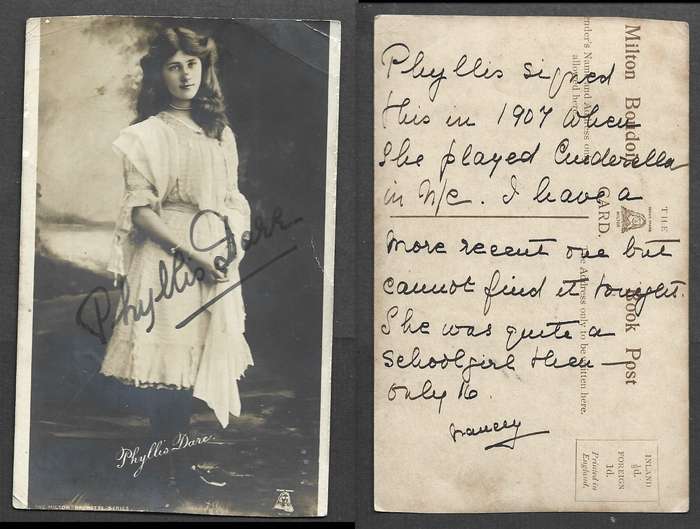 Phyllis Dare
Phyllis Dare.
THE MILTON BROMETTE SERIES
Phyllis signed
this in 1907 when
She played Cinderella
in N/c. I have a
more recent one but
cannot find it tonight.
She was quite a
schoolgirl then —
only 16.
Nancey
THE
Milton Boudoir Book Post
CARD.
ender's Name and Address on
allowed here
he Address only to be written here.
INLAND
½d.
FOREIGN
1d.
Printed in
England.